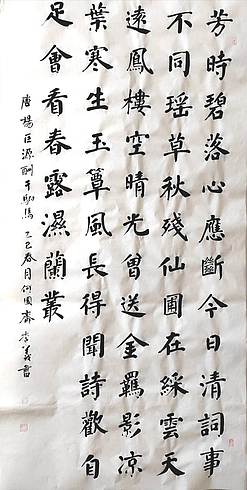 芳時碧落心應斷今日清詞事
不同瑶草秋殘仙圃在綵雲天
遠鳳樓空晴光曾送金羈影凉
葉寒生玉簟風長得聞詩歡自
足會看春露濕蘭叢
唐楊巨源酬于駙馬乙巳春月何園齋書